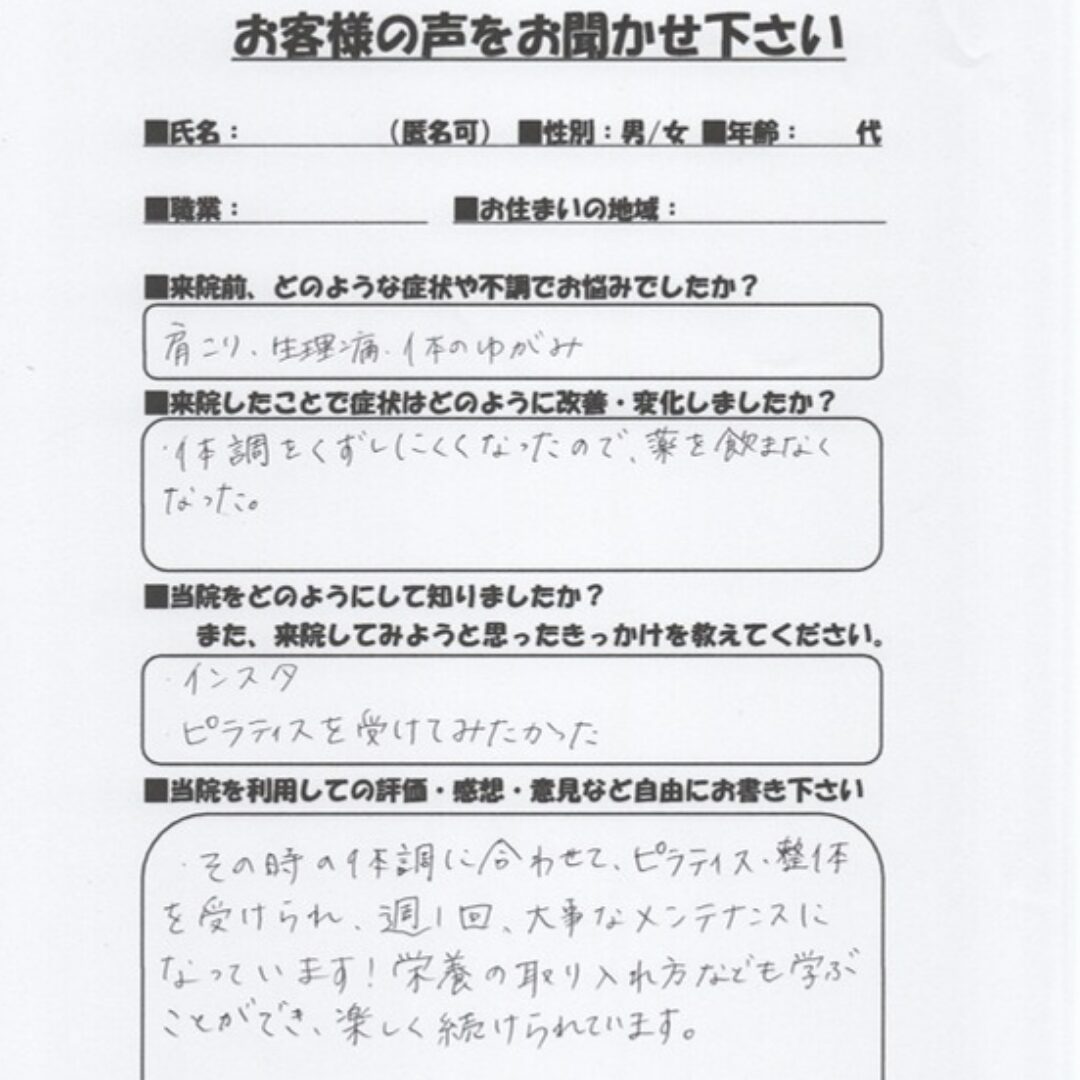 お客様の声をお聞かせ下さい
■氏名： （匿名可） ■性別：男/女 ■年齢： 代
■職業： ■お住まいの地域：
■来院前、どのような症状や不調でお悩みでしたか？
肩こり、生理痛、体のゆがみ
■来院したことで症状はどのように改善・変化しましたか？
・体調をくずしにくくなったので、薬を飲まなく
なった。
■当院をどのようにして知りましたか？
また、来院してみようと思ったきっかけを教えてください。
・インスタ
・ピラティスを受けてみたかった
■当院を利用しての評価・感想・意見など自由にお書き下さい
・その時の体調に合わせて、ピラティス、整体
を受けられ、週1回、大事なメンテナンスに
なっています！栄養の取り入れ方なども学ぶ
ことができ、楽しく続けられています。